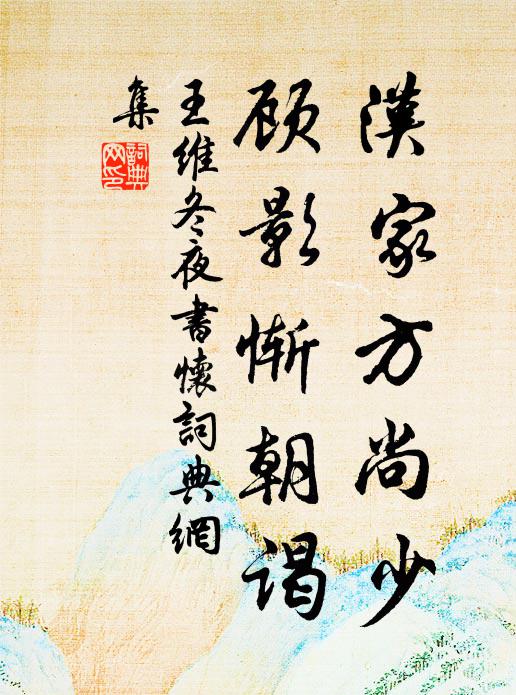 漢家方尚少
顾影惭朝谒
王維冬夜書懷詞典網
集
詞典
网印